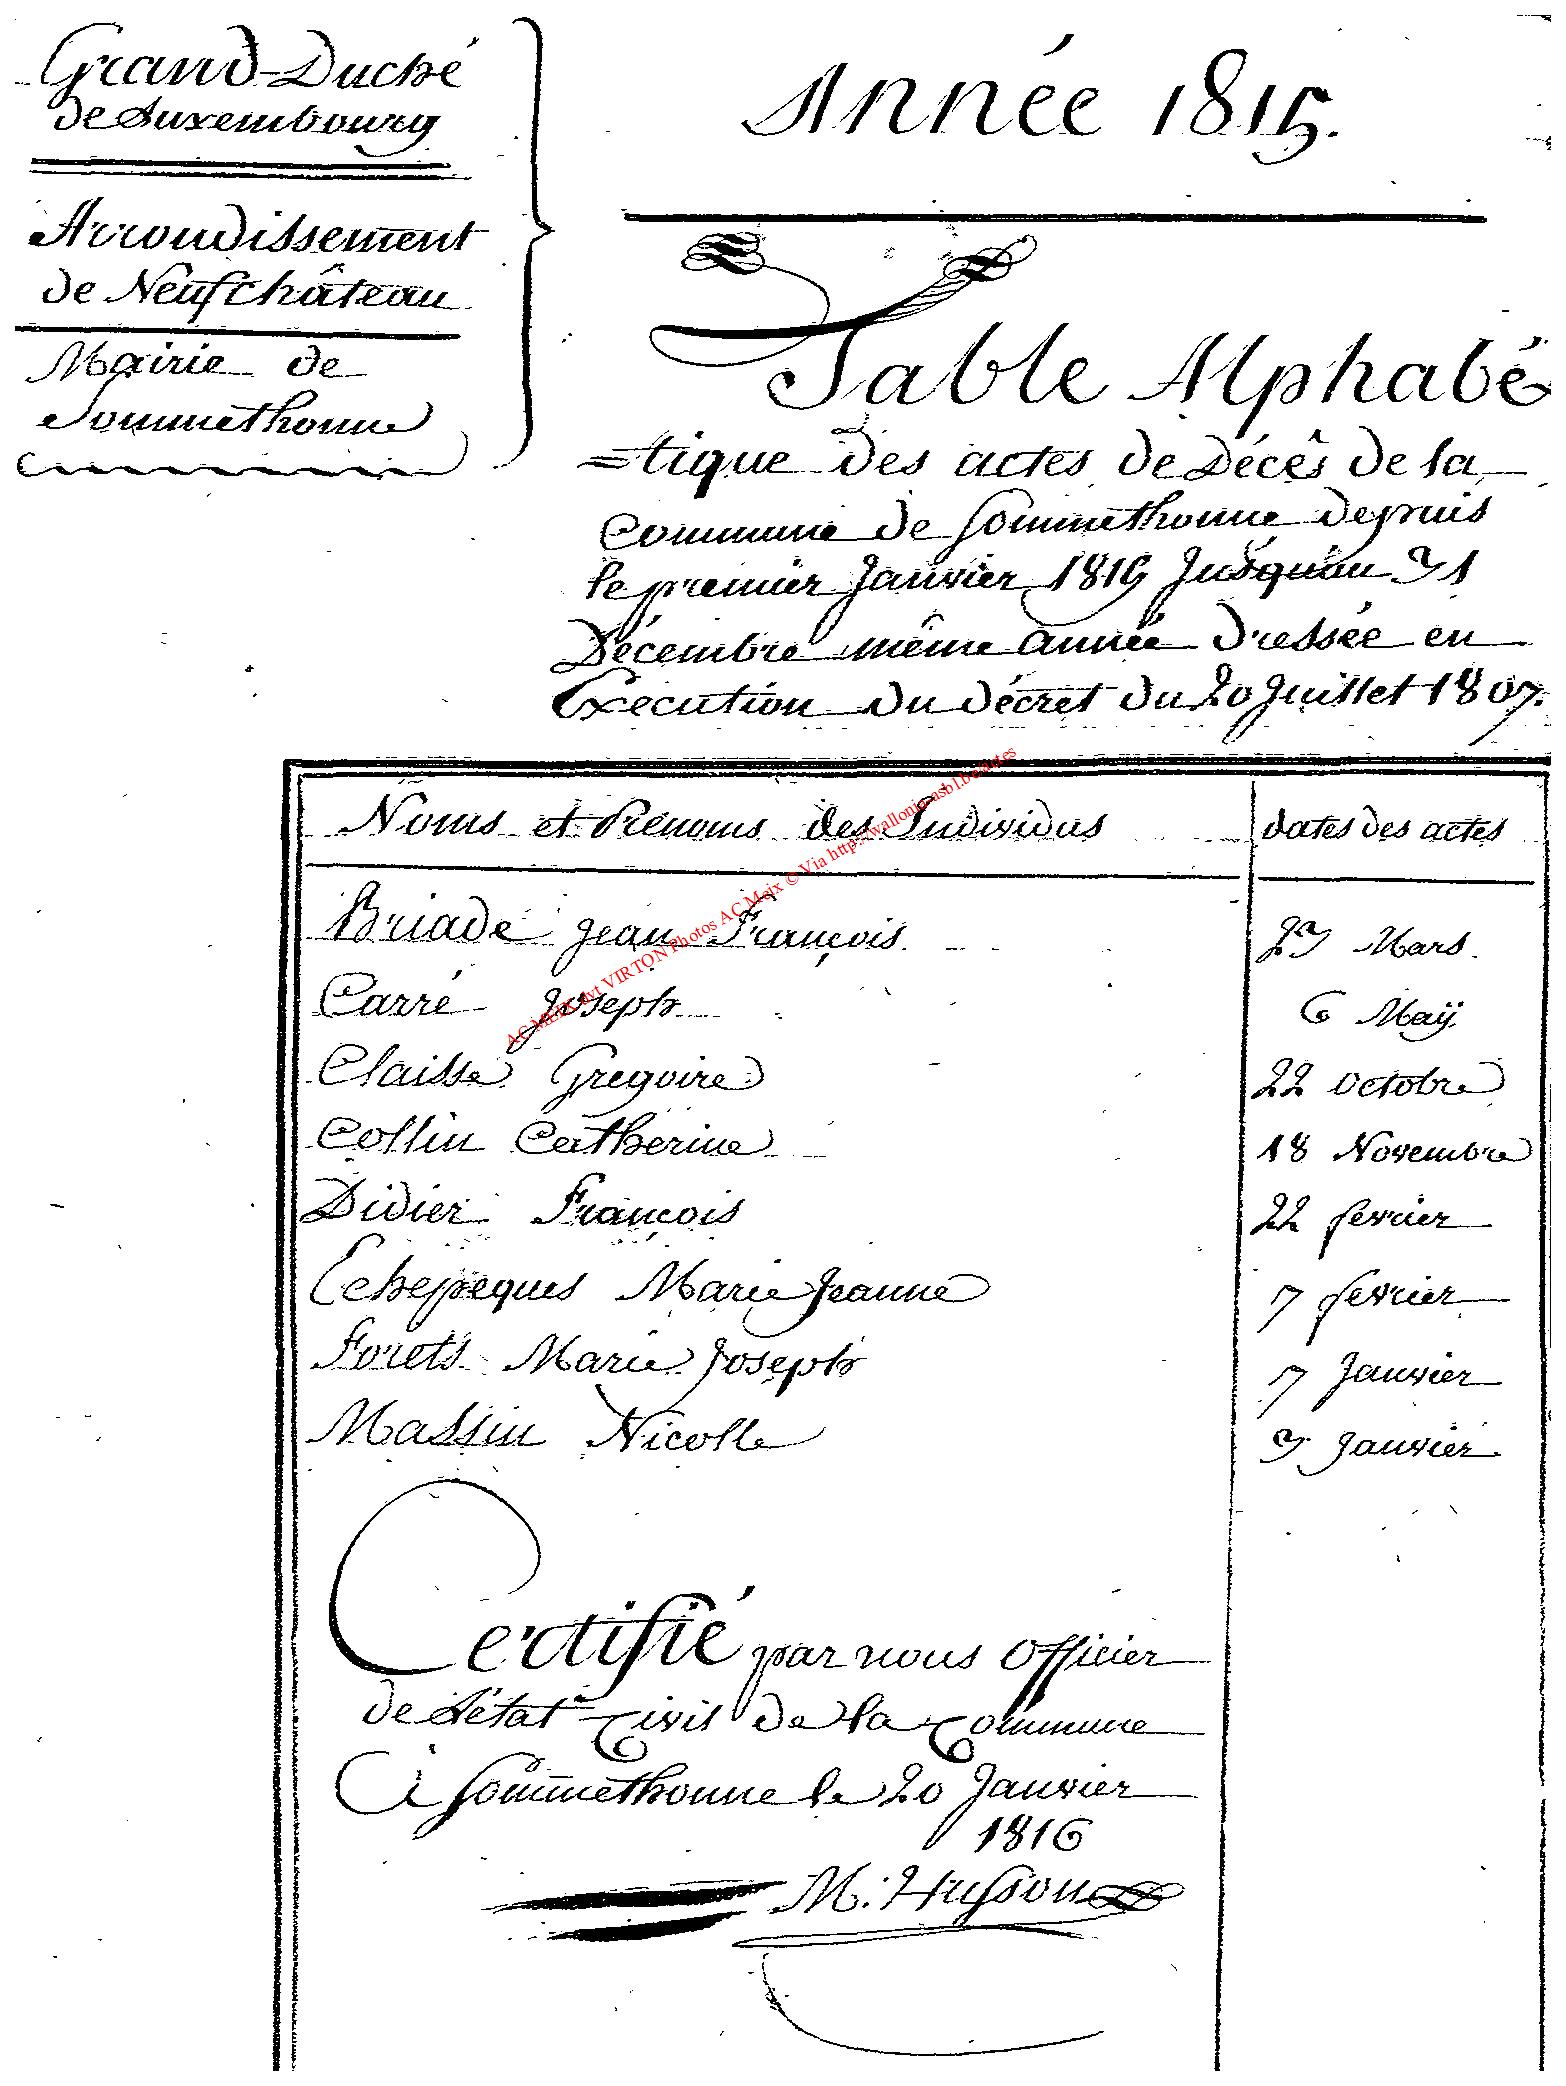 Grand-Duché
de Luxembourg
Arrondissement
de Neufchâteau
Mairie de
Sommethonne
Année 1815.
Table Alphabé
=tique des actes de Décês de la
Commune de Sommethonne depuis
le premier Janvier 1815 Jusqu'au 31
Décembre même année dressée en
Exécution du décret du 20 Juillet 1807.
Noms et Prénoms des Individus dates des actes
Briade Jean François 23 Mars
Carré Joseph 6 Maÿ
Claisse Gregoire 22 octobre
Collin Catherine 18 Novembre
Didier François 22 fevrier
Echepeques Marie Jeanne 7 fevrier
Forets Marie Joseph 7 Janvier
Massin Nicolle 3 Janvier
Certifié par nous Officier
de L'état Civil de la Commune
A Sommethonne le 20 Janvier
1816
M. Husson
AC MEIX dvt VIRTON Photos AC Meix © Via http://wallonia-asbl.be/actes